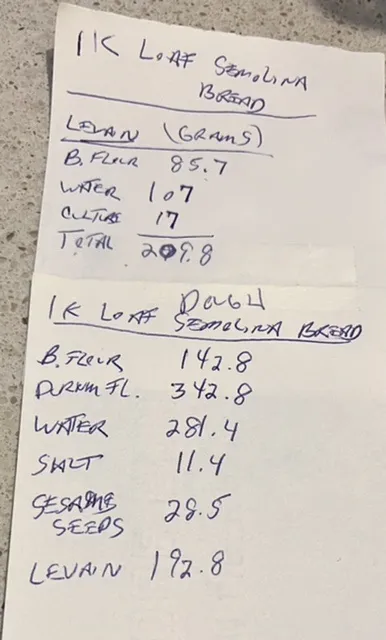 1K LOAF SEMOLINA
BREAD
LEVAIN (GRAMS)
B. FLOUR 85.7
WATER 107
CULTURE 17
TOTAL 209.8
DOUGH
1K LOAF SEMOLINA BREAD
B. FLOUR 142.8
DURUM FL. 342.8
WATER 281.4
SALT 11.4
SESAME 28.5
SEEDS
LEVAIN 192.8